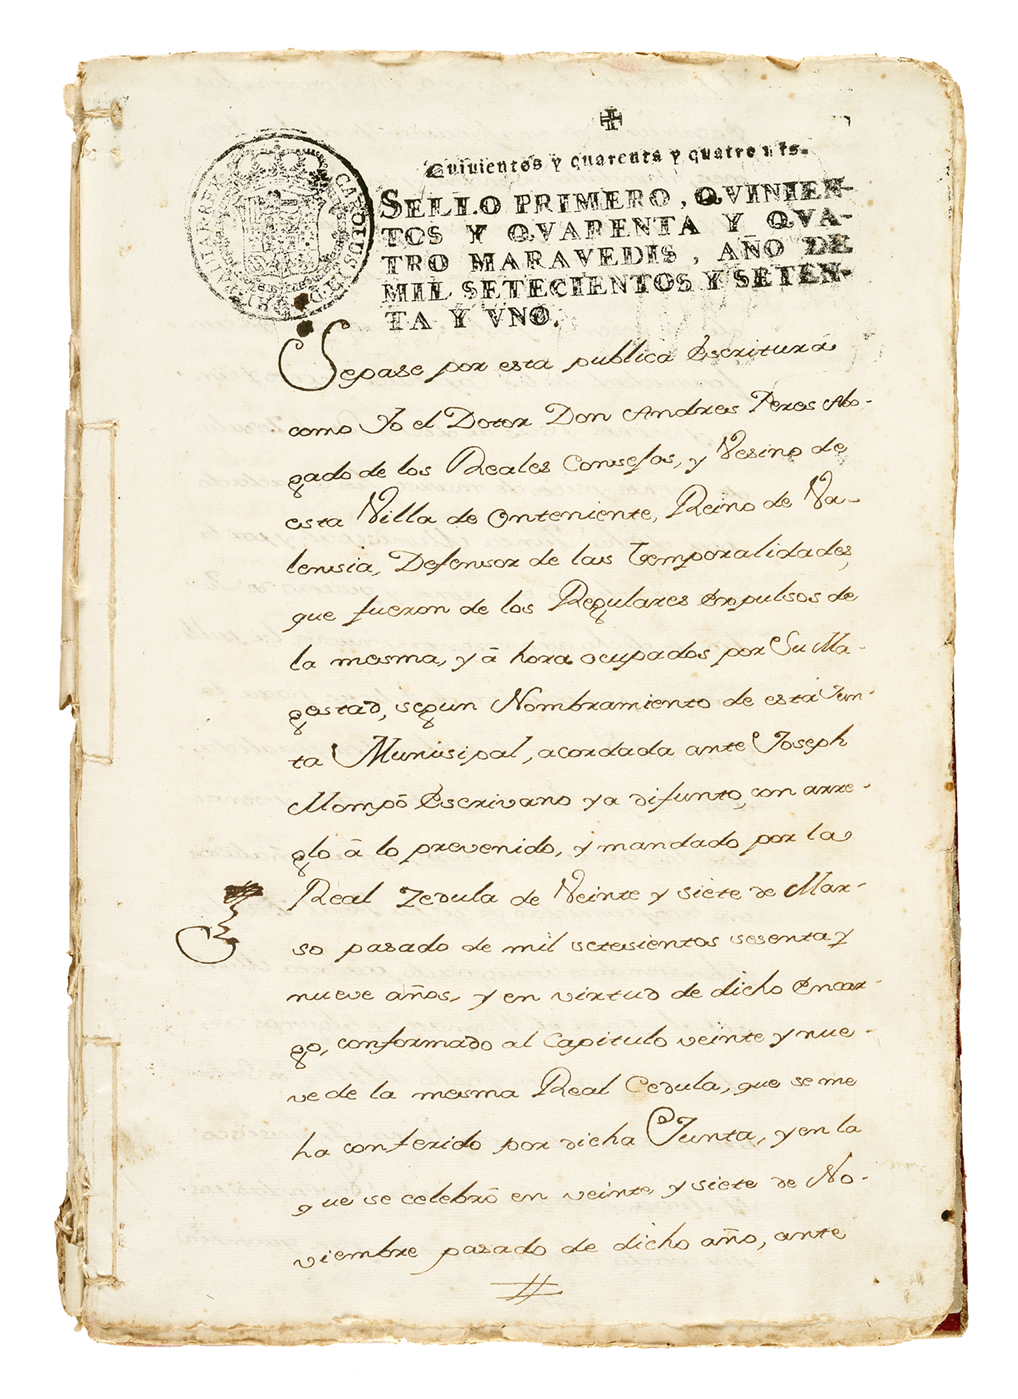 CAROLUS III D G HISPANIAR REX
Quinientos y quarenta y quatro mrs.
SELLO PRIMERO, QVINIEN-
TOS Y QVARENTA Y QVA-
TRO MARAVEDIS, AÑO DE
MIL SETECIENTOS Y SETEN-
TA Y VNO.
Sepase por esta publica Escritura
como Yo el Dotor Don Andres Peres Abo-
gado de los Reales Consejos, y Vesino de
esta Villa de Onteniente, Reino de Va-
lensia, Defensor de las temporalidades,
que fueron de los Regulares Expulsos de
la mesma, y á hora ocupados por Su Ma-
gestad, segun Nombramiento de esta Jun-
ta Munisipal, acordada ante Joseph
Mompó Escrivano ya difunto, con arre-
glo á lo prevenido, y mandado por la
Real Zedula de Veinte y siete de Mar-
so pasado de mil setesientos sesenta y
nueve años, y en virtud de dicho Encar-
go, conformado al Capitulo veinte y nue-
ve de la mesma Real Cedula, que se me
ha conferido por dicha Junta, y en la
que se celebró en veinte y siete de No-
viembre pasado de dicho año, ante